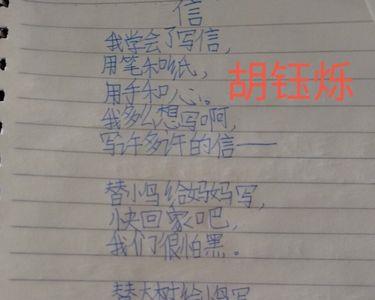 信
我学会了写信，
用笔和纸，
用手和心。
胡钰烁
我多么想写啊，
写许多许的信——
替小鸟给妈妈写，
快回家吧，
我们很怕黑。
替大树给海写